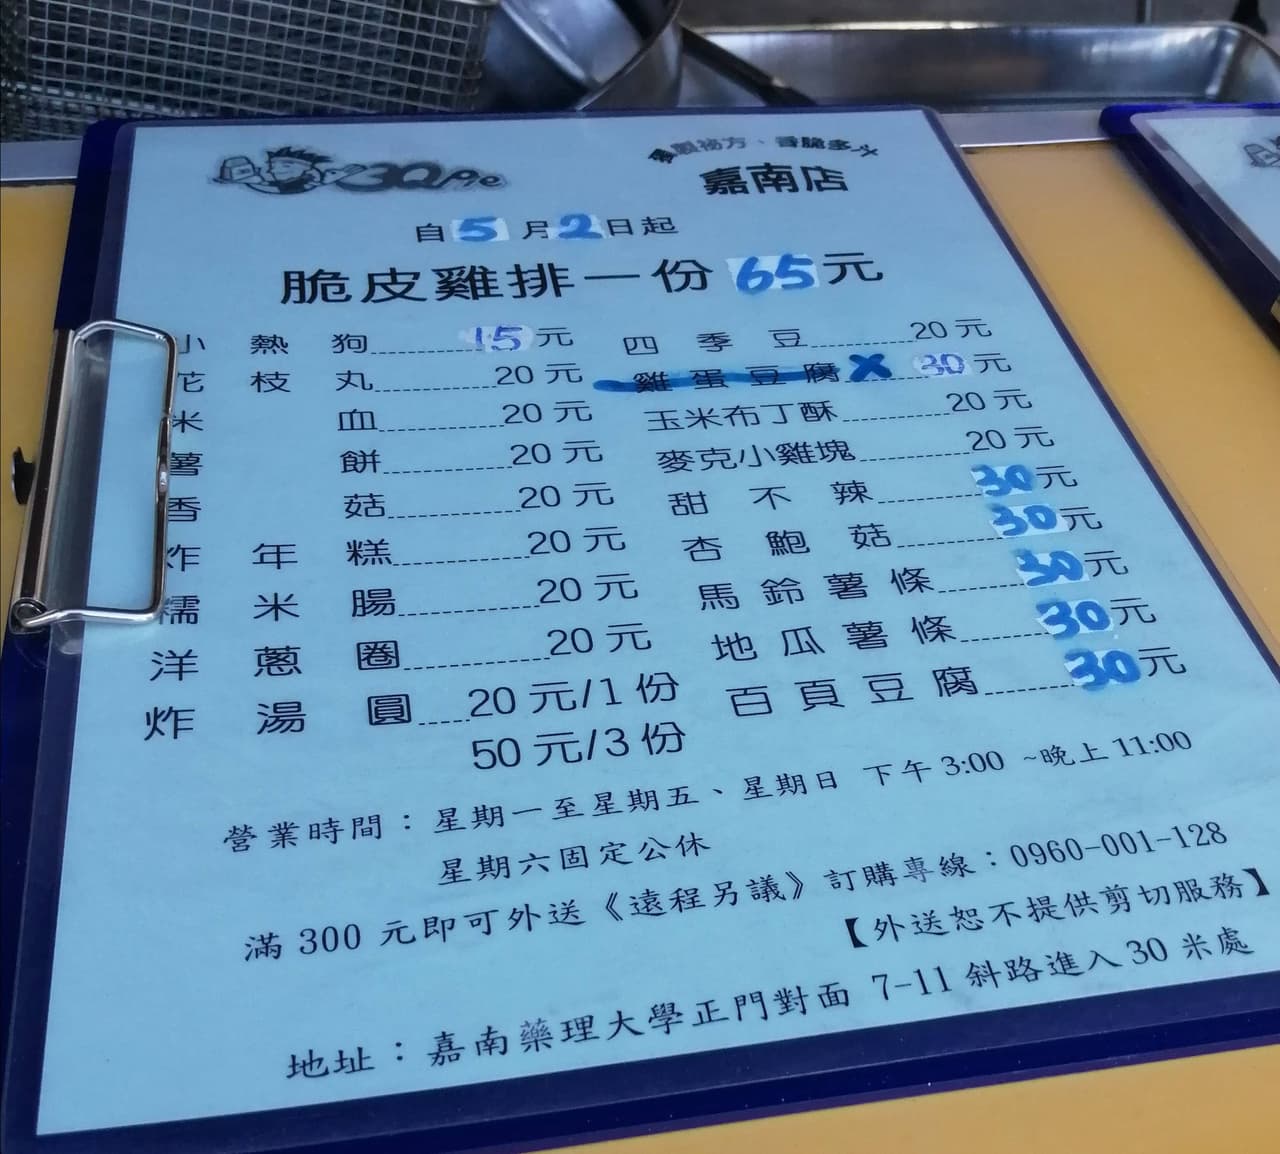 3Q Pie
獨門祕方、香脆多汁
嘉南店
自5月2日起
脆皮雞排一份 65元
小熱狗 15元
花枝丸 20元
米血 20元
薯餅 20元
香菇 20元
炸年糕 20元
糯米腸 20元
洋蔥圈 20元
炸湯圓 20元/1份
50元/3份
四季豆 20元
雞蛋豆腐 X 30元
玉米布丁酥 20元
麥克小雞塊 20元
甜不辣 30元
杏鮑菇 30元
馬鈴薯條 30元
地瓜薯條 30元
百頁豆腐 30元
營業時間：星期一至星期五、星期日 下午3:00 ~晚上11:00
星期六固定公休
滿300元即可外送《遠程另議》訂購專線：0960-001-128
【外送恕不提供剪切服務】
地址：嘉南藥理大學正門對面 7-11斜路進入30米處